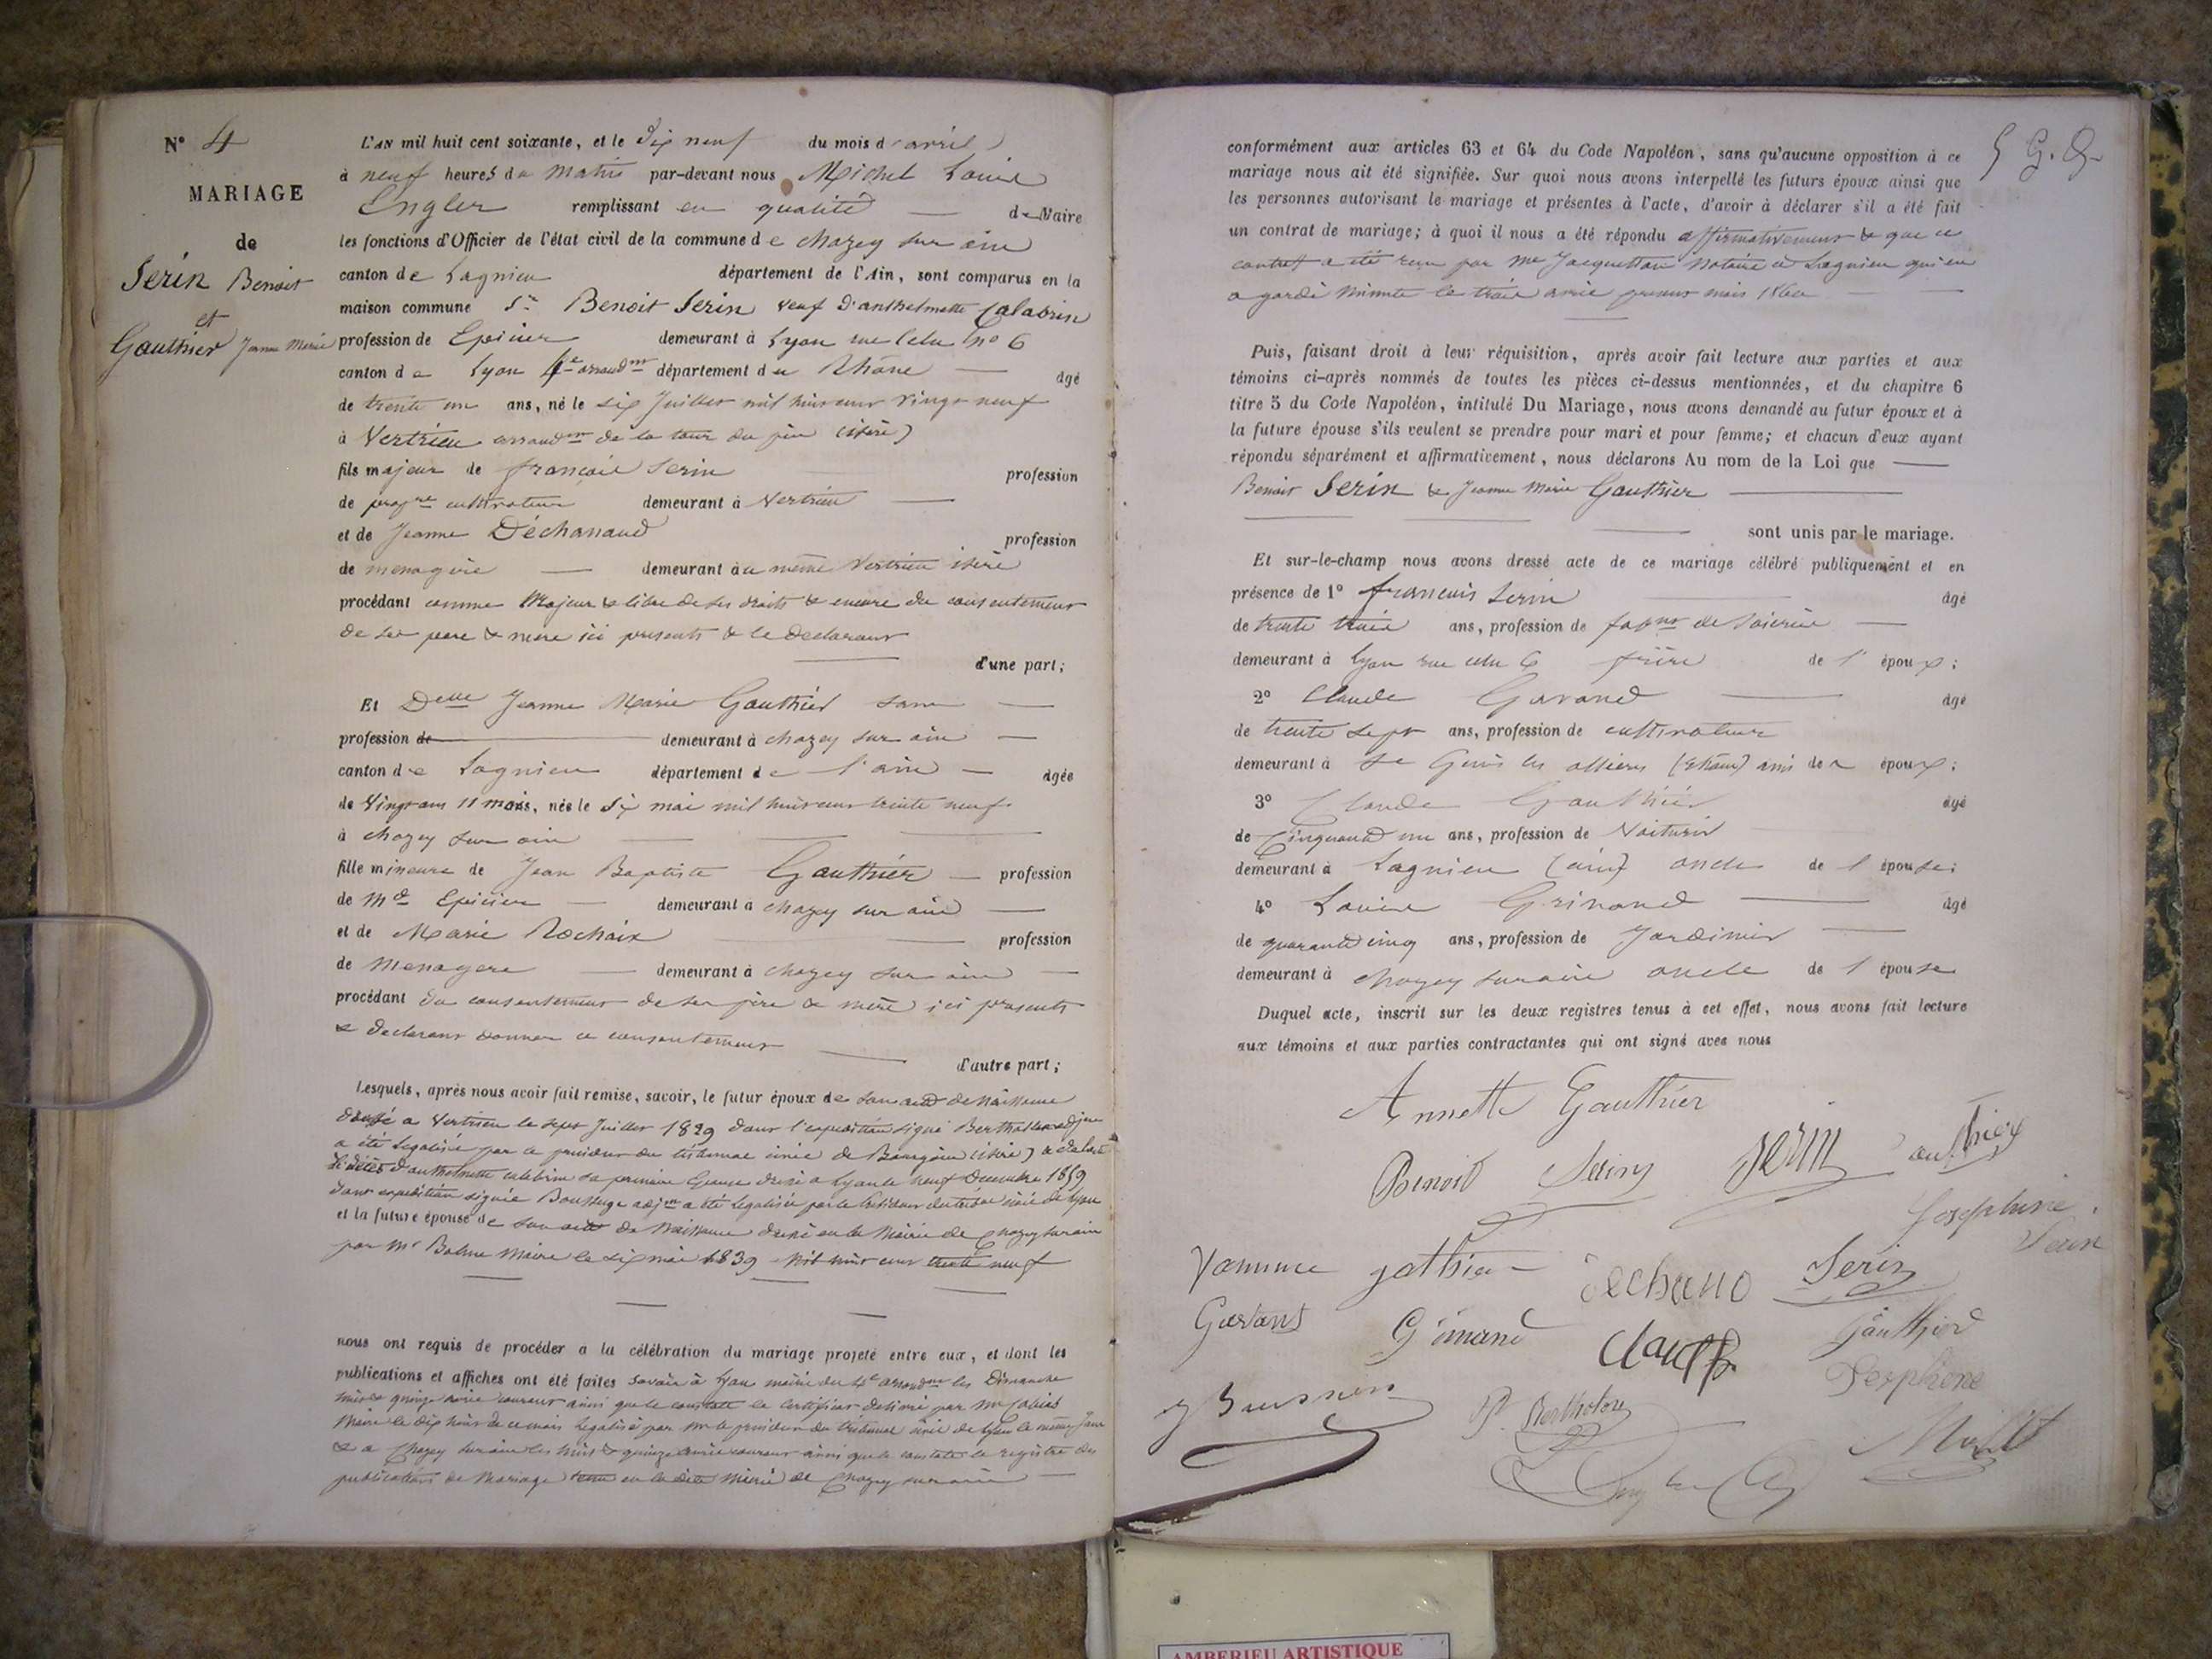 N° 4
MARIAGE
de
Serin Benoit
et
Gauthier Jeanne Marie
L'AN mil huit cent soixante, et le dix neuf du mois d'avril
à neuf heures du matin par-devant nous Michel Louis
Engler remplissant en qualité de Maire
les fonctions d'Officier de l'état civil de la commune de chazey sur ain
canton de Lagnieu département de l'Ain, sont comparus en la
maison commune Sr Benoit Serin veuf d'anthelmette Calabrin
profession de Epicier demeurant à Lyon rue Celu no 6
canton de Lyon 4e arrondmt département du Rhône âgé
de trente un ans, né le six Juillet mil huit cent vingt neuf
à Vertrieu arrondmt de la tour du pin (isère)
fils majeur de françois Serin profession
de propre cultivateur demeurant à Vertrieu
et de Jeanne Déchanaud profession
de menagère demeurant au même Vertrieu isère
procédant comme Majeur & libre de ses droits & encore du consentement
de ses pere & mere ici presents & le declarant
d'une part;
Et Delle Jeanne Marie Gauthier sans
profession de demeurant à chazey sur ain
canton de Lagnieu département de l'ain âgée
de Vingt ans 11 mois, née le six mai mil huit cent trente neuf
à chazey sur ain
fille mineure de Jean Baptiste Gauthier profession
de Md Epicier demeurant à chazey sur ain
et de Marie Rochaix profession
de menagere demeurant à chazey sur ain
procédant du consentement de ses père & mère ici presents
& declarant donner ce consentement
d'autre part;
Lesquels, après nous avoir fait remise, savoir, le futur époux de son acte de naissance
dressé a Vertrieu le sept Juillet 1829 dont l'expédition signé Berthollet adjoint
a été legalisée par le president du tribunal civil de Bourgoin (isère) & de l'acte
de décès d'anthelmette calabrin sa première femme dressé a Lyon le neuf Decembre 1859
dont expédition signée adjt a été legalisée par le President du tribunal civil de Lyon
et la future épouse de son acte de Naissance dressé en la Mairie de Chazey sur ain
par Mr Balme Maire le six mai 1839 mil huit cent trente neuf
nous ont requis de procéder à la célébration du mariage projeté entre eux, et dont les
publications et affiches ont été faites savoir à Lyon mairie du 4e arrondmt les Dimanche
huit & quinze avril courant ainsi que le constate le certificat delivré par Mr
Maire le dix huit de ce mois legalisé par Mr le president du tribunal civil de Lyon le même jour
& a Chazey sur ain les huit & quinze avril courant ainsi que le constate le registre des
publications de Mariage tenu en la dite Mairie de Chazey sur ain
5 G. G.
conformément aux articles 63 et 64 du Code Napoléon, sans qu'aucune opposition à ce
mariage nous ait été signifiée. Sur quoi nous avons interpellé les futurs époux ainsi que
les personnes autorisant le mariage et présentes à l'acte, d'avoir à déclarer s'il a été fait
un contrat de mariage; à quoi il nous a été répondu affirmativement & que ce
contrat a été reçu par Me Jacquetton Notaire à Lagnieu qui en
a gardé minute le treize avril present mois 1860
Puis, faisant droit à leur réquisition, après avoir fait lecture aux parties et aux
témoins ci-après nommés de toutes les pièces ci-dessus mentionnées, et du chapitre 6
titre 5 du Code Napoléon, intitulé Du Mariage, nous avons demandé au futur époux et à
la future épouse s'ils veulent se prendre pour mari et pour femme; et chacun d'eux ayant
répondu séparément et affirmativement, nous déclarons Au nom de la Loi que
Benoit Serin & Jeanne Marie Gauthier
sont unis par le mariage.
Et sur-le-champ nous avons dressé acte de ce mariage célébré publiquement et en
présence de 1° francois Serin âgé
de trente trois ans, profession de fabnt de Soierie
demeurant à Lyon rue celu 6 frère de l'époux;
2° Claude Gavand âgé
de trente sept ans, profession de cultivateur
demeurant à St Genis les ollieres (rhône) ami de l'époux;
3° Claude Gauthier âgé
de Cinquante un ans, profession de Voiturier
demeurant à Lagnieu (ain) oncle de l'épouse;
4° Louis Grinand âgé
de quarante cinq ans, profession de Jardinier
demeurant à chazey sur ain oncle de l'épouse
Duquel acte, inscrit sur les deux registres tenus à cet effet, nous avons fait lecture
aux témoins et aux parties contractantes qui ont signé avec nous
Annette Gauthier
Benoit Serin Serin Gauthier
Josephine Serin
gothier dechano Serin
Gavand Grinand Claude Gauthier
Josephine
J Buisson P. Bertholon
Engler
AMBERIEU ARTISTIQUE